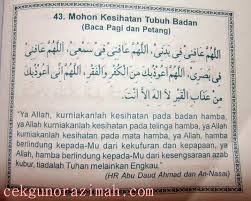 43. Mohon Kesihatan Tubuh Badan
(Baca Pagi dan Petang)
اَللّٰهُمَّ عَافِنِيْ فِيْ بَدَنِيْ، اَللّٰهُمَّ عَافِنِيْ فِيْ سَمْعِيْ، اَللّٰهُمَّ عَافِنِيْ
فِيْ بَصَرِيْ، اَللّٰهُمَّ إِنِّيْ أَعُوْذُبِكَ مِنَ الْكُفْرِ وَالْفَقْرِ، اَللّٰهُمَّ إِنِّيْ أَعُوْذُبِكَ
مِنْ عَذَابِ الْقَبْرِ لَا إِلٰهَ إِلَّا أَنْتَ.
"Ya Allah, kurniakanlah kesihatan pada badan hamba,
ya Allah kurniakanlah kesihatan pada telinga hamba, ya Allah
kurniakanlah kesihatan pada mata hamba, ya Allah, hamba
berlindung kepada-Mu dari kekufuran dan kepapaan, ya
Allah, hamba berlindung kepada-Mu dari kesengsaraan azab
kubur, tiadalah Tuhan melainkan Engkau."
(HR Abu Daud Ahmad dan An-Nasai)
cekgunorazimah.com